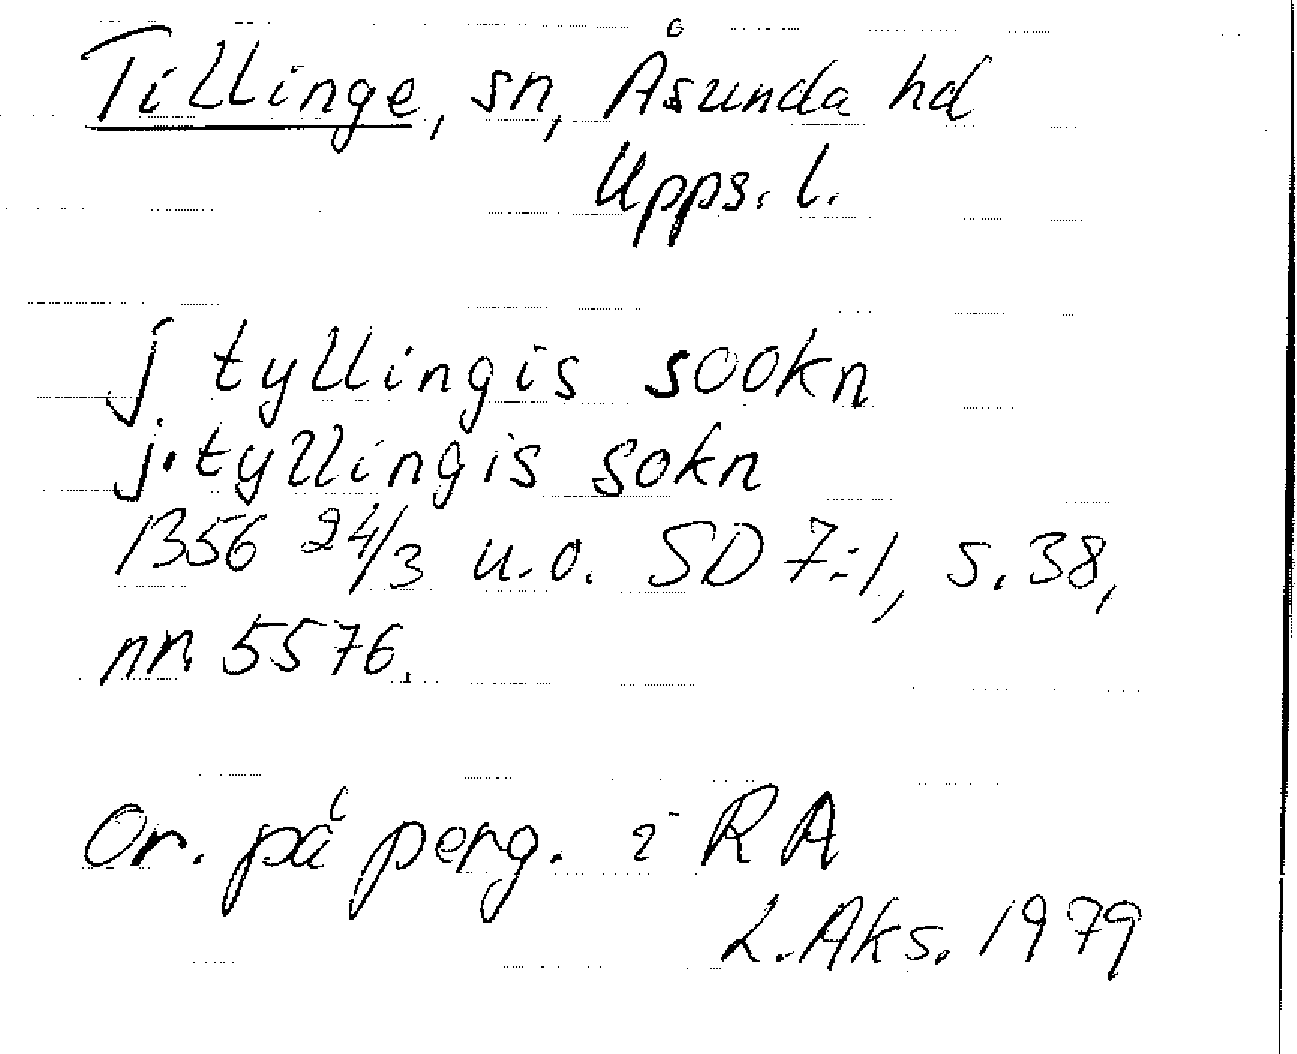 Tillinge, sn, Åsunda hd
Upps. l.
j tyllingis sookn
j. tyllingis sokn
1356 24/3 u.o. SD 7:1, s. 38,
nr. 5576.
Or. på perg. i RA
L. Aks. 1979